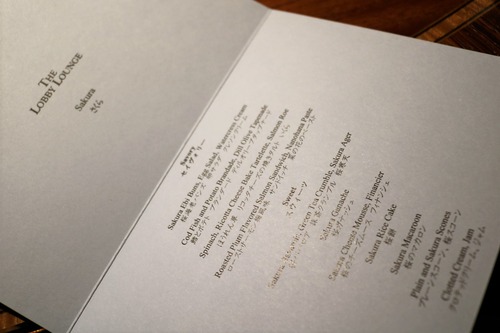 THE
LOBBY LOUNGE
Sakura
さくら
Savory
セイヴォリー
Sakura Ebi Buns, Egg Salad, Watercress Cream
桜海老バンズ 卵サラダ クレソンクリーム
Cod Fish and Potato Brandade, Dill Olive Tapenade
鱈とポテト ブランダード ディルオリーブタップナード
Spinach, Ricotta Cheese Bake Tartelette, Salmon Roe
ほうれん草、リコッタチーズの焼きタルト いくら
Roasted Plum Flavored Salmon Sandwich, Nanohana Paste
ローストサーモン梅風味 サンドイッチ 菜の花のペースト
Sweet
スウィーツ
Sakura, Green Tea Crumble, Sakura Ager
抹茶クランブル 桜寒天
Sakura Ganache
桜ガナッシュ
Sakura Cheese Mousse, Financier
桜のチーズムース フィナンシェ
Sakura Rice Cake
桜餅
Sakura Macaroon
桜のマカロン
Plain and Sakura Scones
プレーンスコーン、桜スコーン
Clotted Cream, Jam
クロテッドクリーム、ジャム